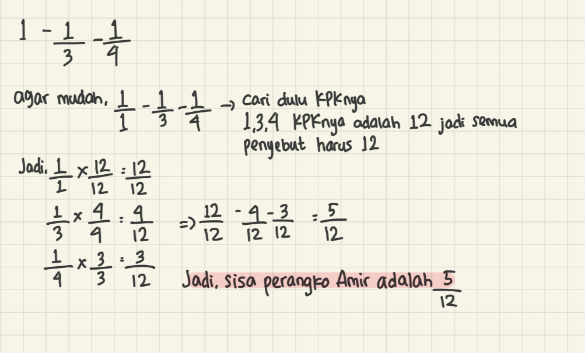 1 - 1/3 - 1/4
agar mudah, 1/1 - 1/3 - 1/4 → cari dulu KPKnya
1,3,4 KPKnya adalah 12 jadi semua
penyebut harus 12
Jadi, 1/1 x 12/12 = 12/12
1/3 x 4/4 = 4/12 => 12/12 - 4/12 - 3/12 = 5/12
1/4 x 3/3 = 3/12
Jadi, sisa perangko Amir adalah 5/12